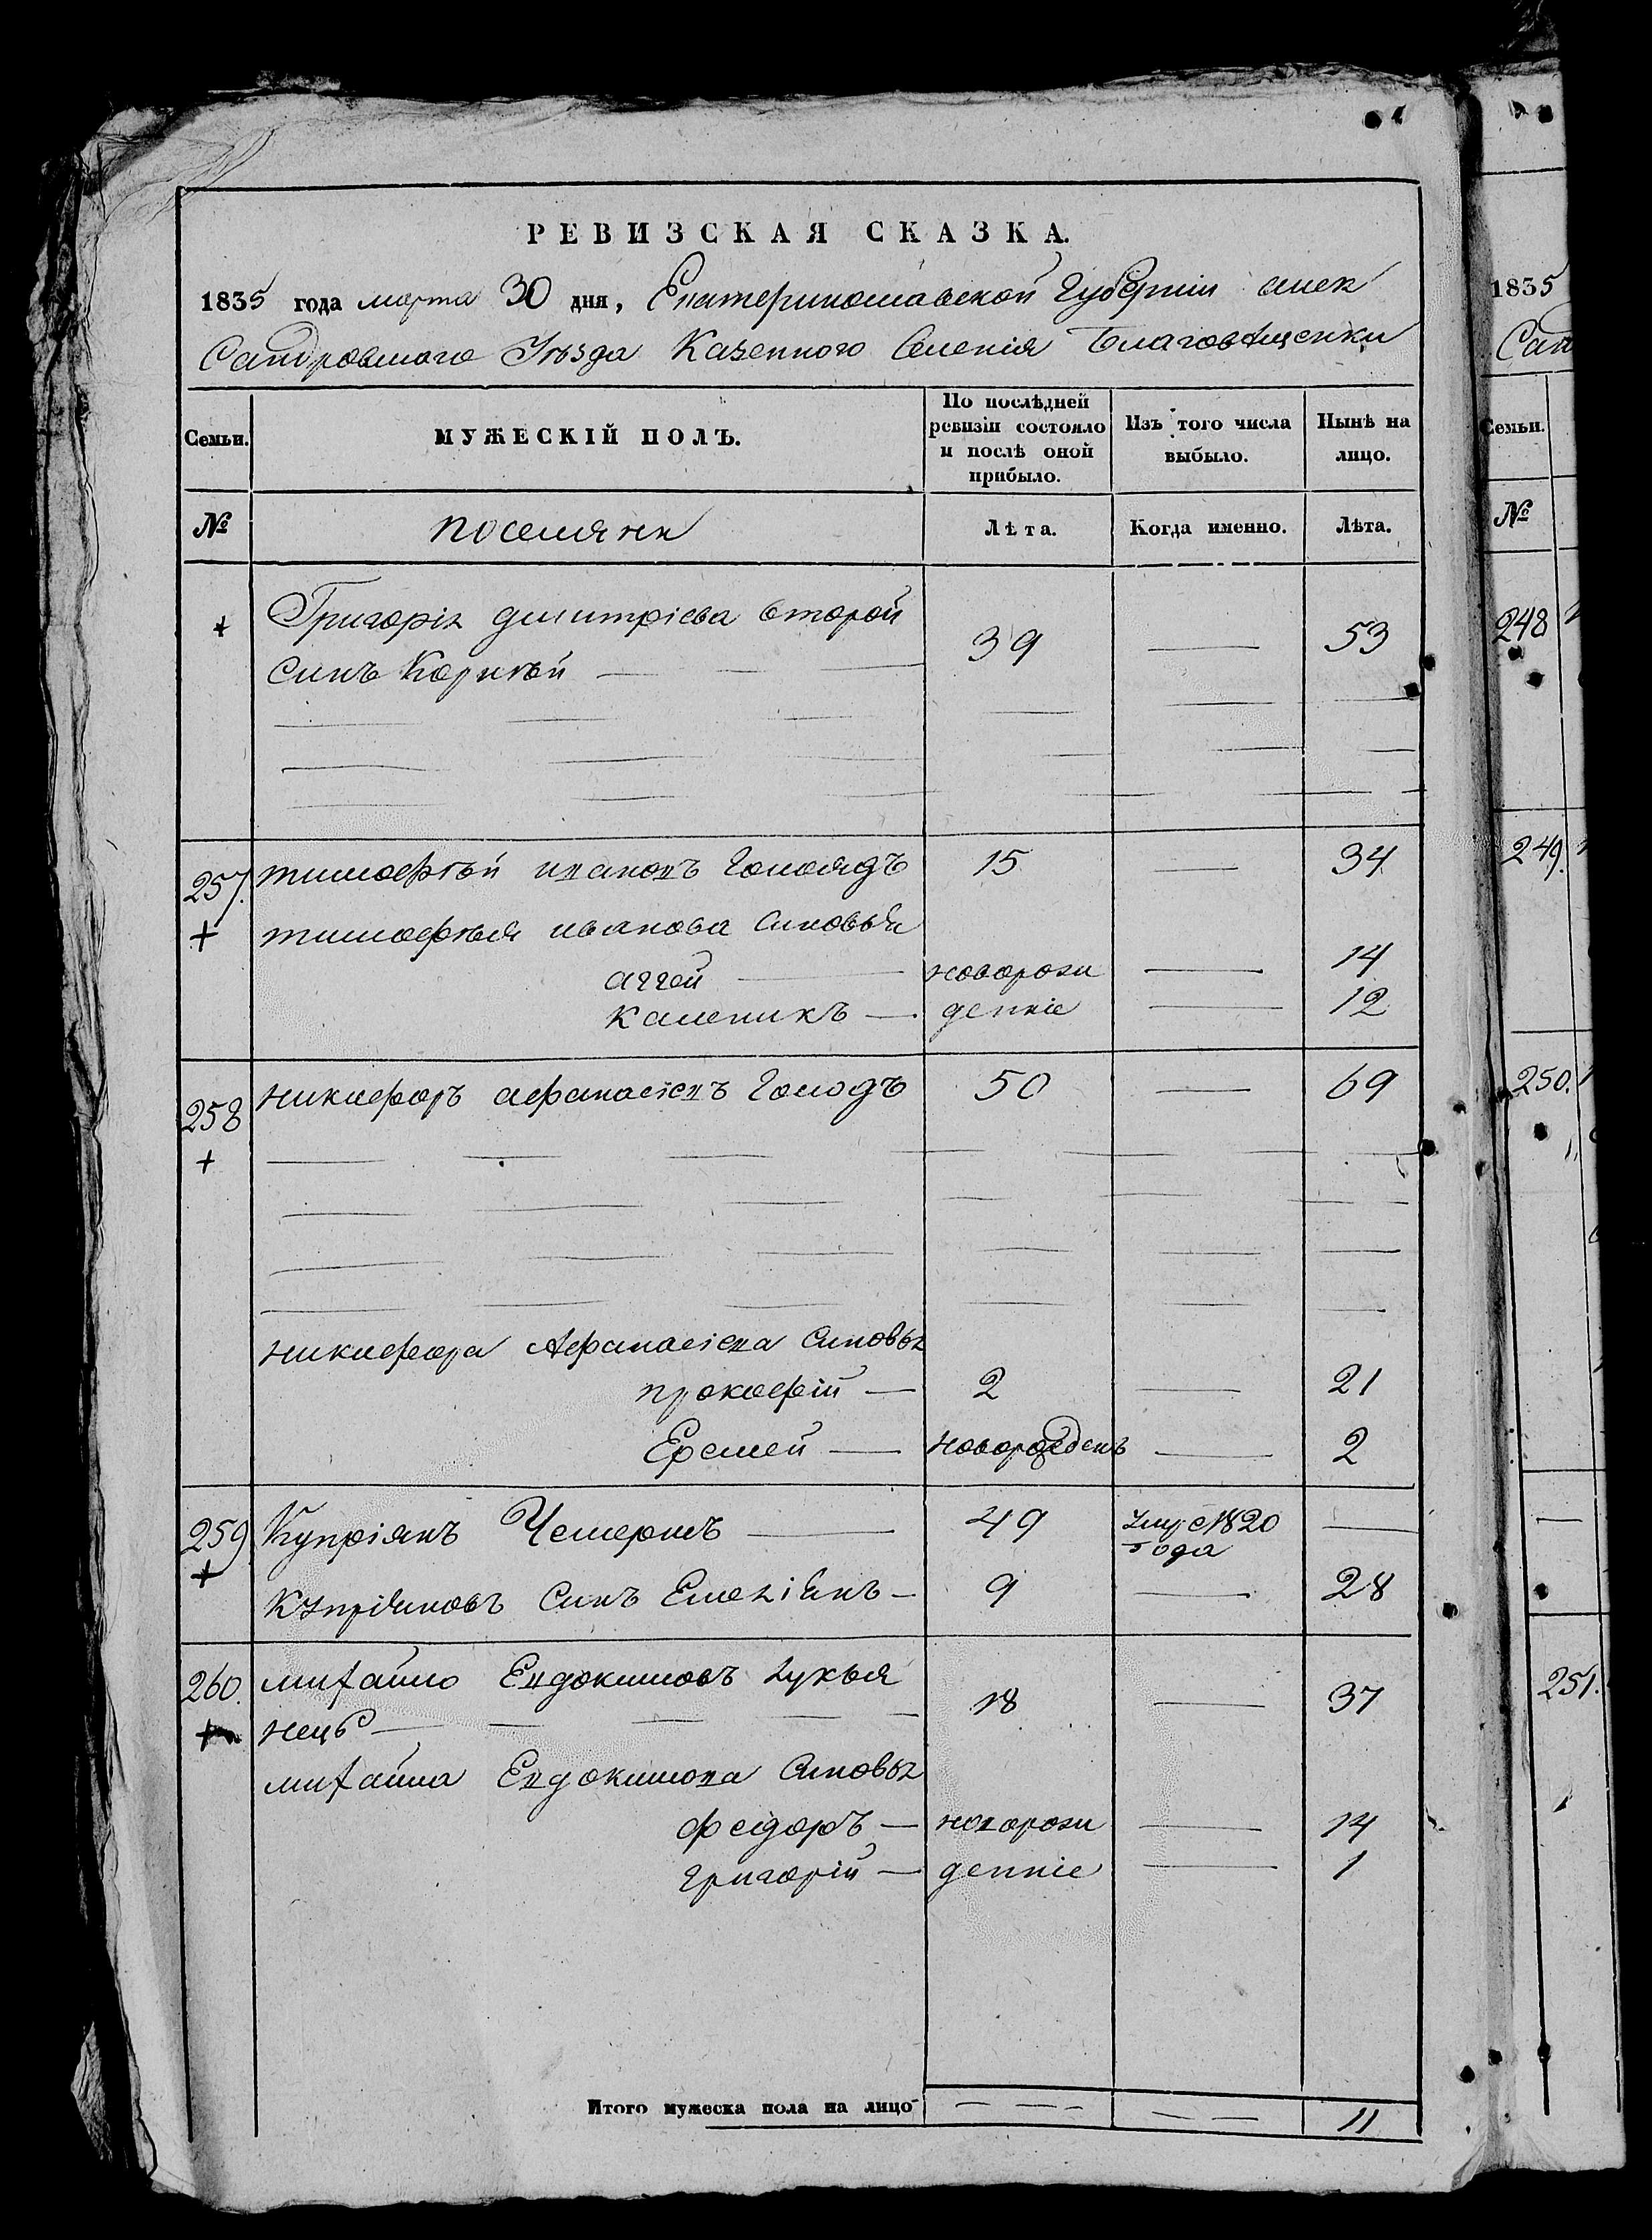 РЕВИЗСКАЯ СКАЗКА.
1835 года марта 30 дня, Екатеринославской Губерніи алек
Сандровского Уѣзда Казенного Селенія Благовѣщенки
Семьи. МУЖЕСКІЙ ПОЛЪ. По послѣдней ревизіи состояло и послѣ оной прибыло. Изъ того числа выбыло. Нынѣ на лицо.
№ поселяне Лѣта. Когда именно. Лѣта.
Григорія димитріева второй
синъ Корнѣй — 39 — 53
257. тимофѣй иванов Голодъ 15 — 34
тимофѣя иванова синовья
аггей — новорож — 14
каленикъ —денніе — 12
258 никифоръ афанасіевъ Голодъ 50 — 69
никифора Афанасіева Синовья
прокофій — 2 — 21
Еремей — новорожденъ — 2
259 Купріянъ Чемерисъ — 49 умре 1820 —
года
Купріяновъ Синъ Емеліянъ — 9 — 28
260. михайло Евдокимовъ лукья
нецъ — 18 — 37
михайла Евдокимова Синовья
федоръ — новорож — 14
григорій — денніе — 1
Итого мужеска пола на лицо — — — 11
1835
Сан
Семьи.
№
248
249.
250.
251.